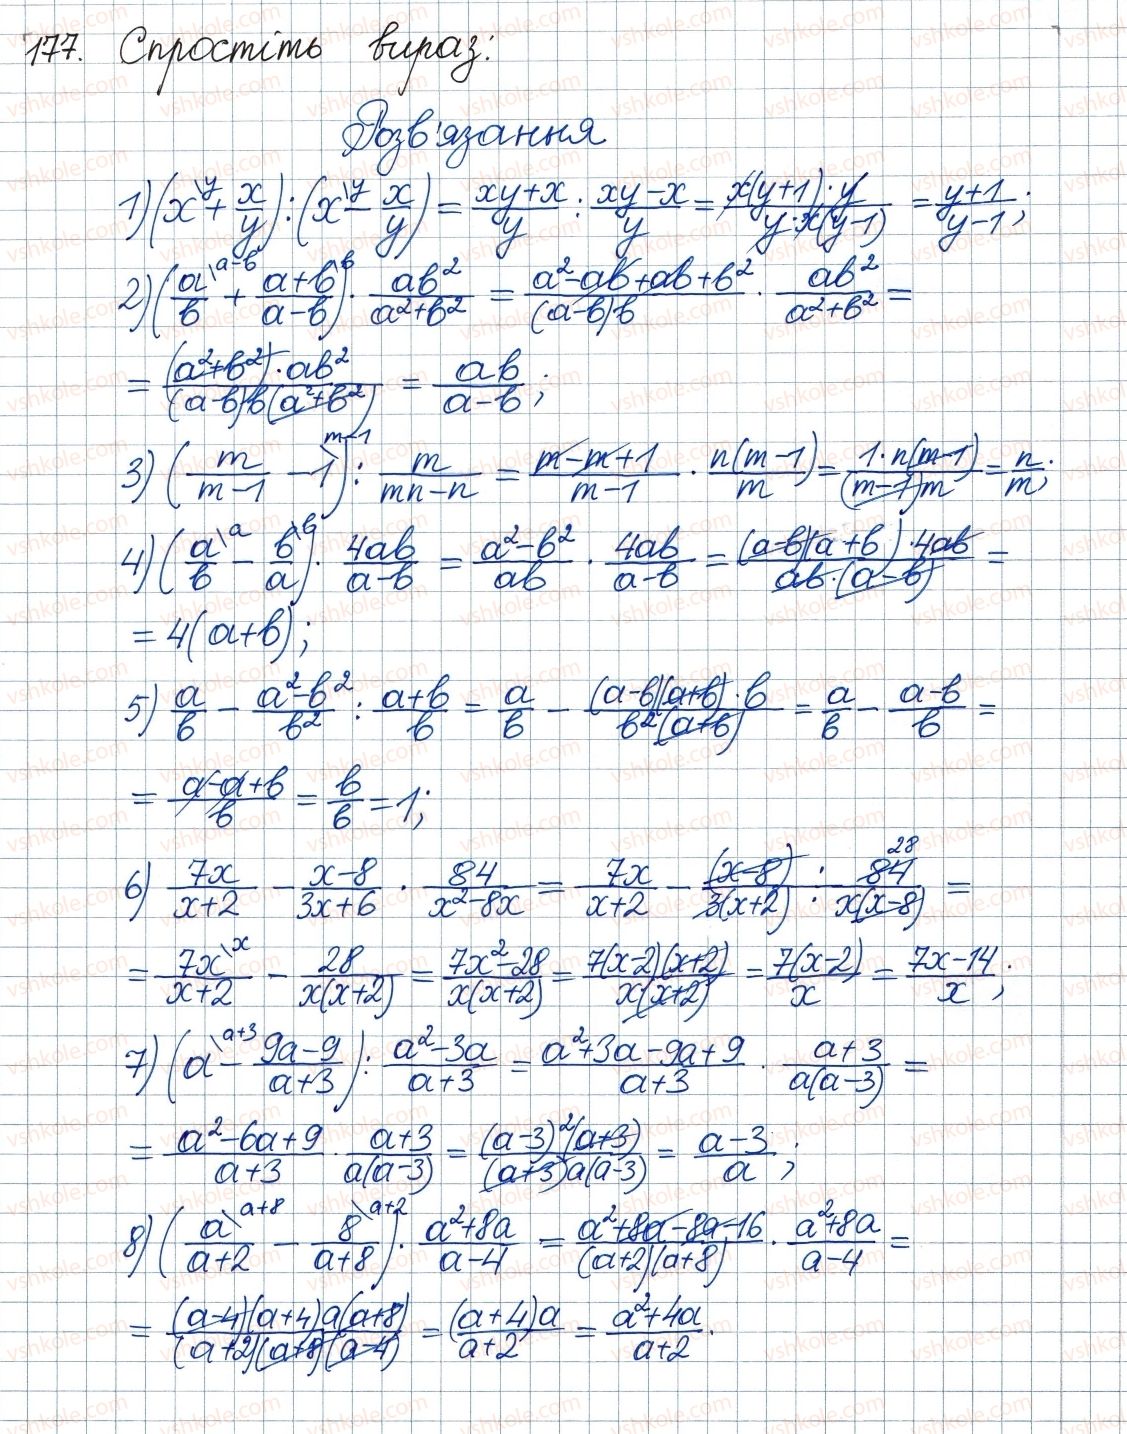 177. Спростіть вираз:
Розв'язання
1) (x\y + x/y) : (x\y − x/y) = (xy+x)/y : (xy−x)/y = (x(y+1)·y)/(y·x(y−1)) = (y+1)/(y−1);
2) (a/b\a−b + (a+b)/(a−b)\b) · ab²/(a²+b²) = (a²−ab+ab+b²)/((a−b)b) · ab²/(a²+b²) =
= ((a²+b²)·ab²)/((a−b)b(a²+b²)) = ab/(a−b);
3) (m/(m−1) − 1\m−1) : m/(mn−n) = (m−m+1)/(m−1) · n(m−1)/m = (1·n(m−1))/((m−1)m) = n/m;
4) (a/b\a − b/a\b) · 4ab/(a−b) = (a²−b²)/ab · 4ab/(a−b) = ((a−b)(a+b)·4ab)/(ab·(a−b)) =
= 4(a+b);
5) a/b − (a²−b²)/b² : (a+b)/b = a/b − ((a−b)(a+b)·b)/(b²(a+b)) = a/b − (a−b)/b =
= (a−a+b)/b = b/b = 1;
6) 7x/(x+2) − (x−8)/(3x+6) · 84/(x²−8x) = 7x/(x+2) − (x−8)/(3(x+2)) · 84 28/(x(x−8)) =
= 7x/(x+2)\x − 28/(x(x+2)) = (7x²−28)/(x(x+2)) = (7(x−2)(x+2))/(x(x+2)) = 7(x−2)/x = (7x−14)/x;
7) (a\a+3 − (9a−9)/(a+3)) : (a²−3a)/(a+3) = (a²+3a−9a+9)/(a+3) · (a+3)/(a(a−3)) =
= (a²−6a+9)/(a+3) · (a+3)/(a(a−3)) = ((a−3)²(a+3))/((a+3)a(a−3)) = (a−3)/a;
8) (a/(a+2)\a+8 − 8/(a+8)\a+2) · (a²+8a)/(a−4) = (a²+8a−8a−16)/((a+2)(a+8)) · (a²+8a)/(a−4) =
= ((a−4)(a+4)a(a+8))/((a+2)(a+8)(a−4)) = ((a+4)a)/(a+2) = (a²+4a)/(a+2).